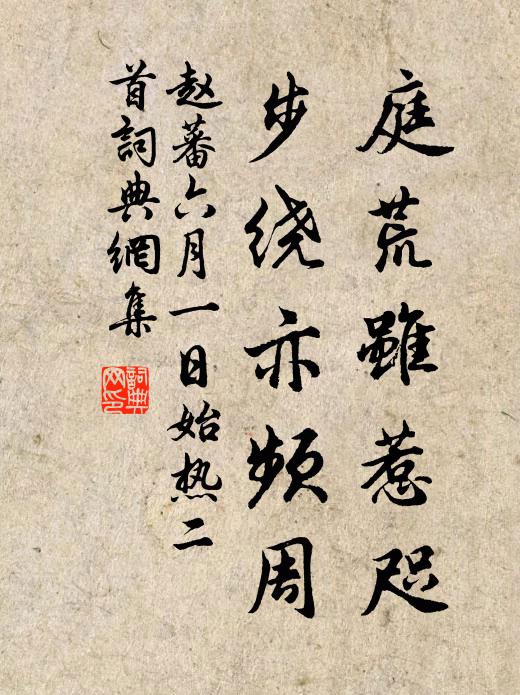 庭荒雖惹咫
步绕亦频周
赵蕃六月一日始热二
首詞典網集
詞典
网印